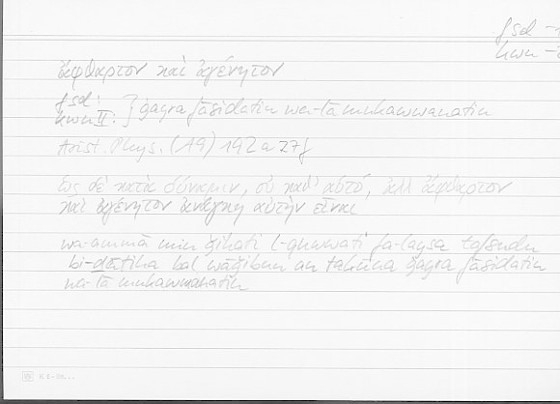 fsd -
kwn -
ἄφθαρτον καὶ ἀγένητον
fsd I
kwn II } ġayra fāsidatin wa-lā mukawwanatin
Arist. Phys. (A9) 192 a 27f
ὡς δὲ κατὰ δύναμιν, οὐ καθ' αὑτό, ἀλλ' ἄφθαρτον
καὶ ἀγένητον ἀνάγκη αὐτὴν εἶναι
wa-ammā min ǧihati l-quwwati fa-laysa tafsudu
bi-ḏātihā bal wāǧibun an takūna ġayra fāsidatin
wa-lā mukawwanatin